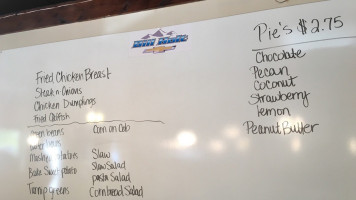 Pie's $2.75
Chocolate
Pecan
Coconut
Strawberry
lemon
Peanut Butter
Fried Chicken Breast
Steak n Onions
Chicken Dumplings
Fried Catfish
Green beans
Corn on Cob
Mashed Potatoes
Slaw
Slaw Salad
Bake Sweet potato
pasta Salad
Turnip greens
Cornbread Salad